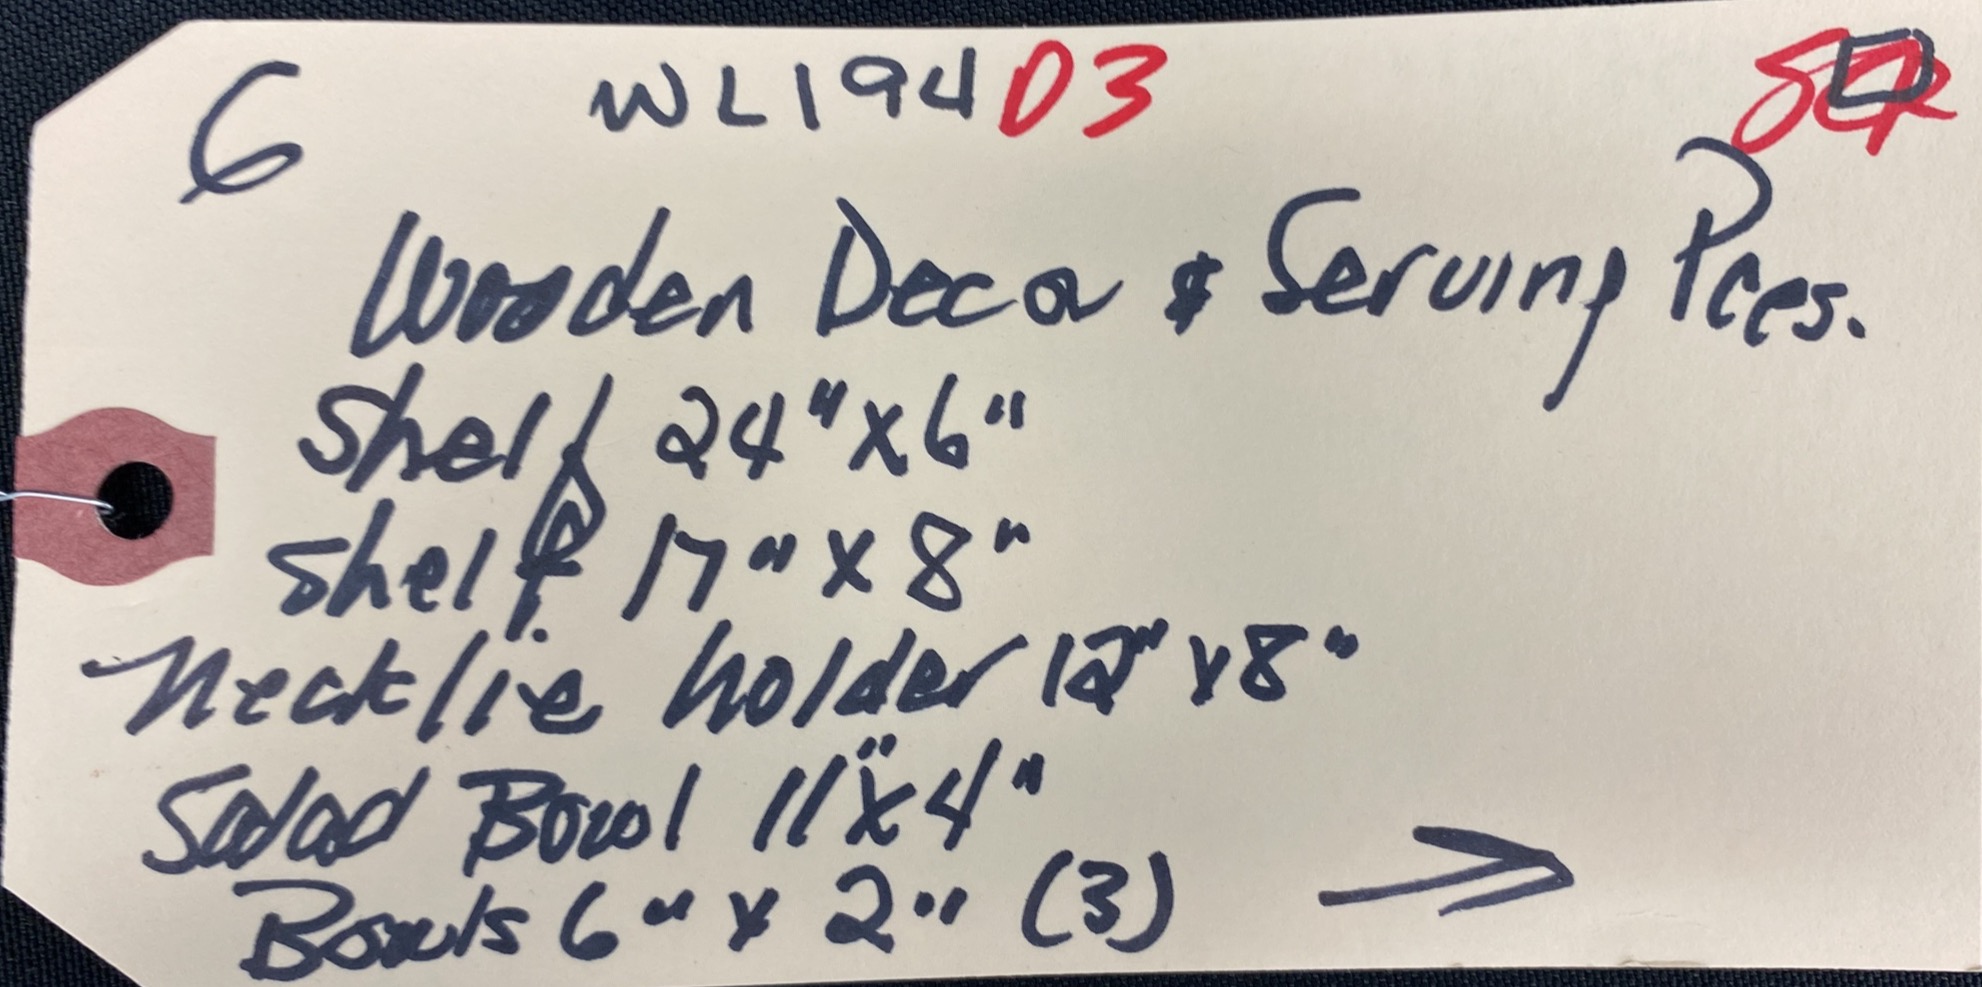 6 WL194 D3
Wooden Decor & Serving Pces.
Shelf 24" x 6"
Shelf 17" x 8"
Necktie holder 12" x 8"
Salad Bowl 11" x 4"
Bowls 6" x 2" (3)